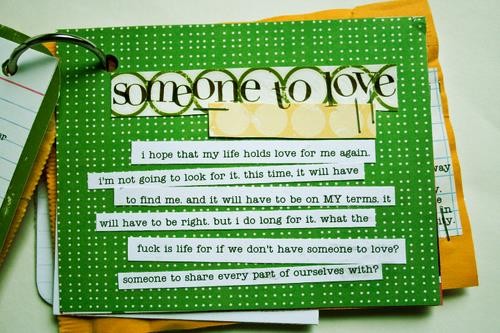 someone to love
i hope that my life holds love for me again.
i'm not going to look for it. this time, it will have
to find me. and it will have to be on MY terms. it
will have to be right. but i do long for it. what the
fuck is life for if we don't have someone to love?
someone to share every part of ourselves with?